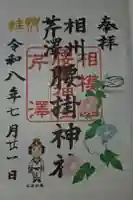 奉拝
相模
相州
芹澤
腰掛神社
芹澤
令和八年七月廿一日